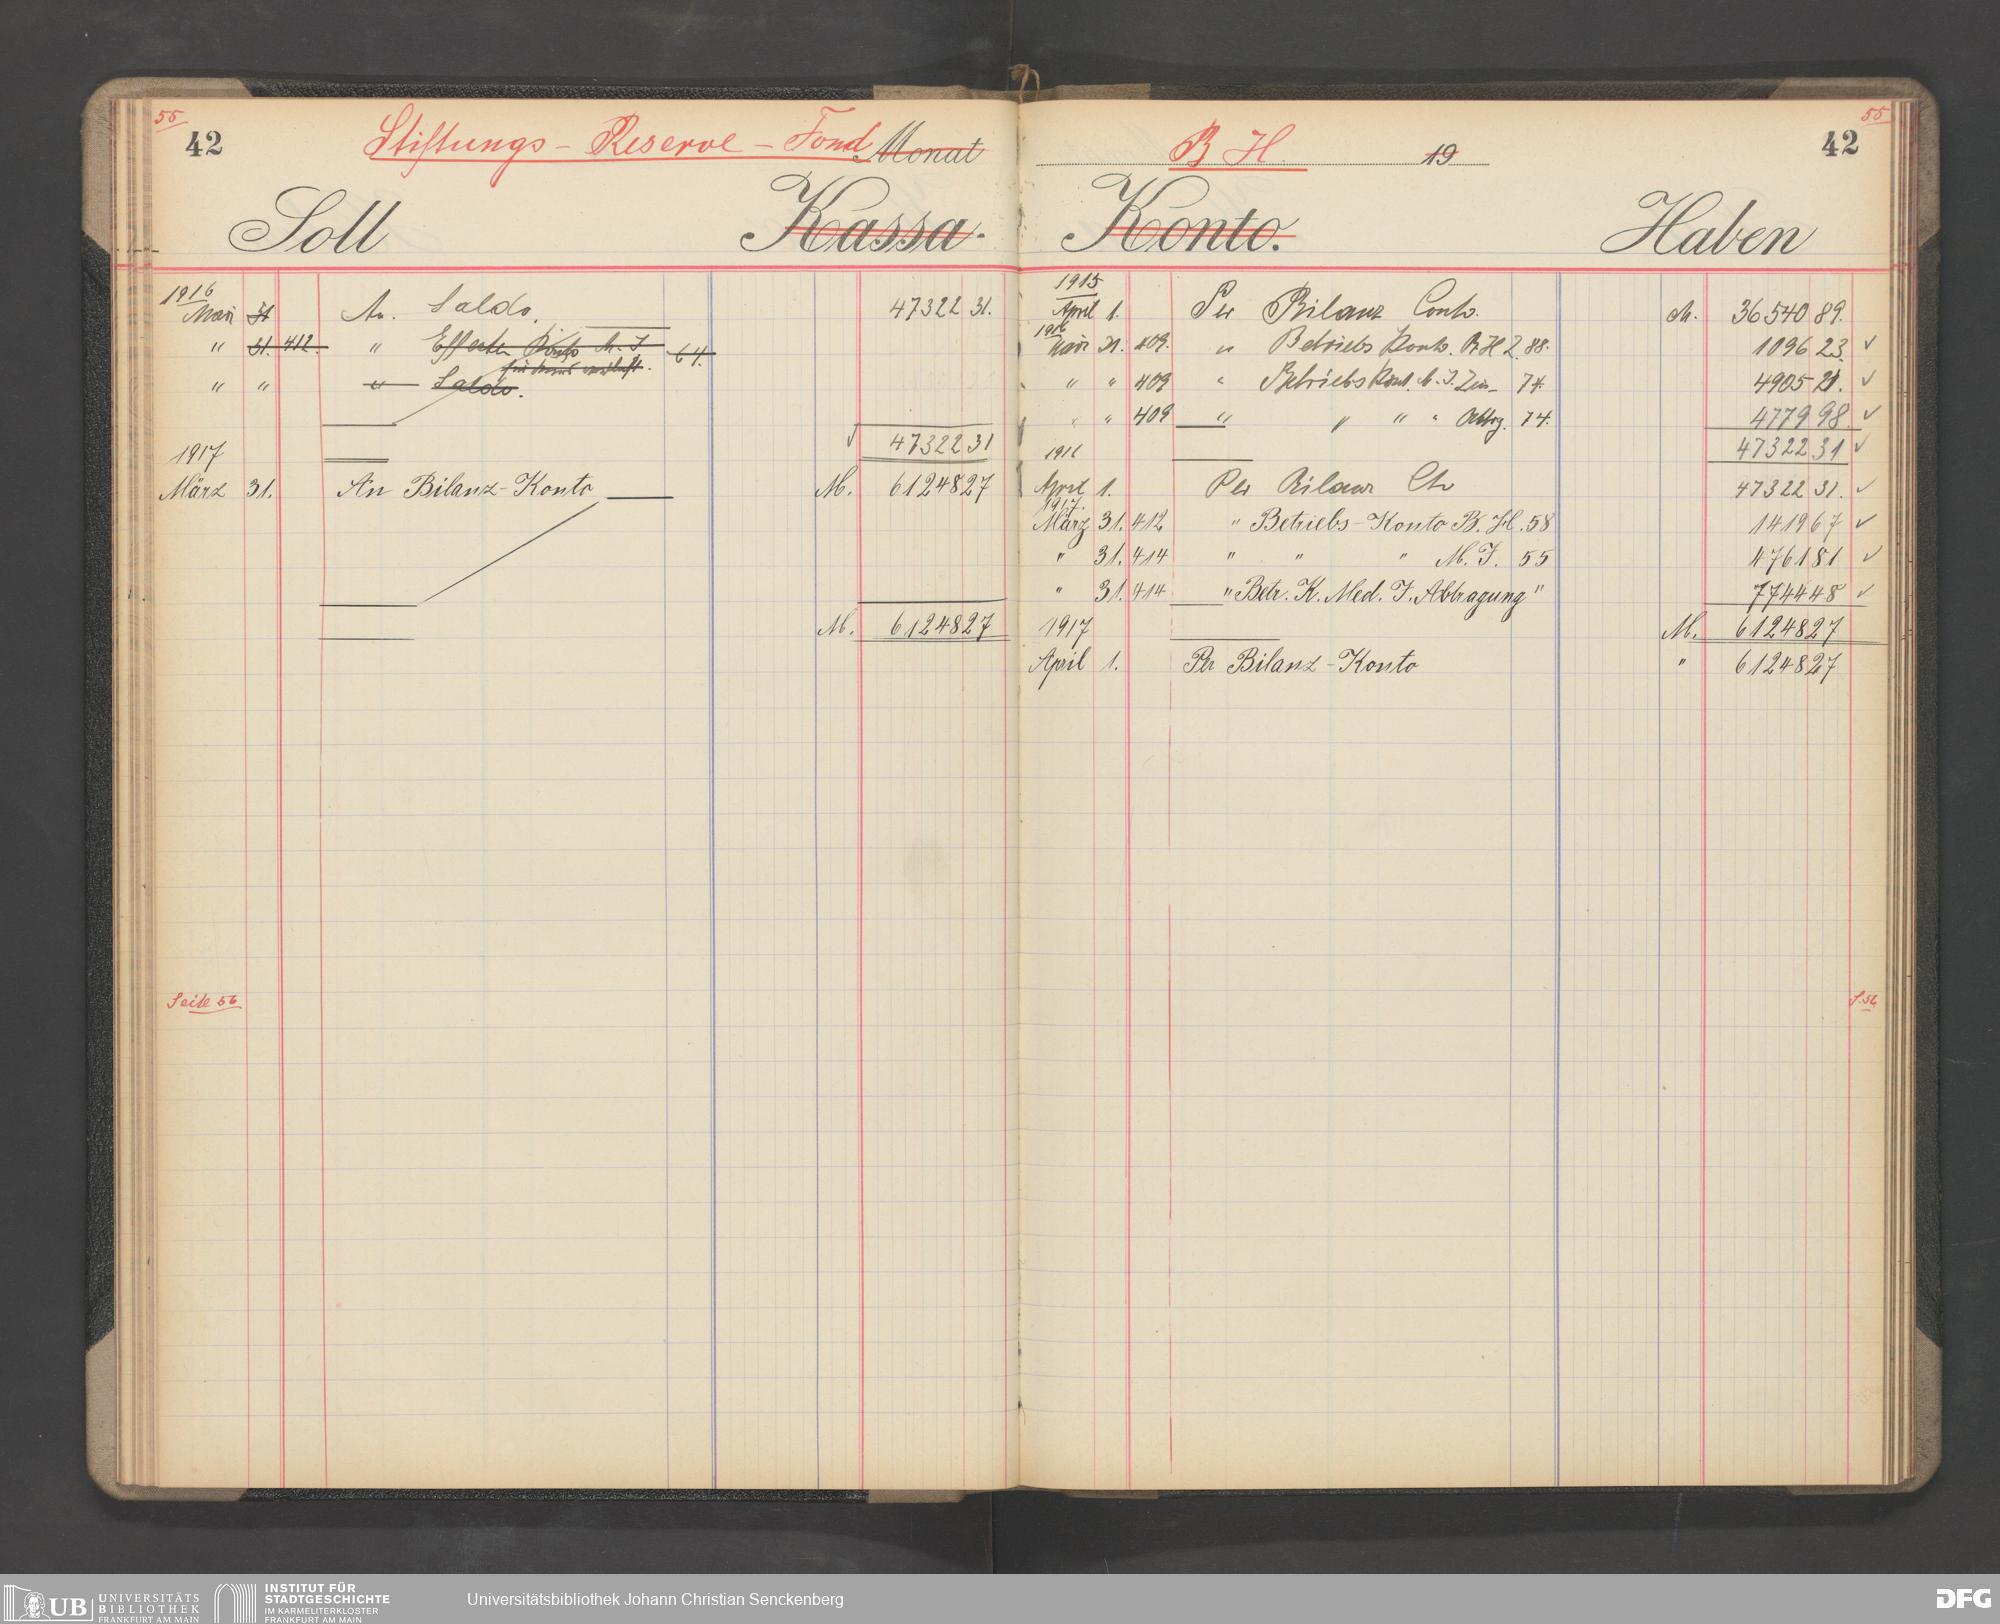 55
42
Stiftungs-Reserve-Fond Monat
Soll Kassa-
1916
März 31 An Saldo. 47322 31.
" 31. 412. " Effecten Konto M. I 64.
" " " Saldo.
47322 31
1917
März 31. An Bilanz-Konto M. 61248 27
M. 61248 27
Seite 56
55
B H. 19
42
Konto. Haben
1915
April 1. Per Bilanz Conto. M. 36540 89.
1916
März 31. 409. " Betriebs Konto. B H Z. 88. 1096 23 ✓
" " 409 " Betriebs Kont. M. I. Zin- 74. 4905 21. ✓
" " 409 " " " " Abtrg. 74. 4779 98 ✓
47322 31 ✓
1916
April 1. Per Bilanz Cto 47322 31. ✓
1917.
März 31. 412 " Betriebs-Konto B. H. 58 1419 67 ✓
" 31. 414 " " " M. I. 55 4761 81 ✓
" 31. 414 " Betr. K. Med. I. Abtragung " 7744 48 ✓
M. 61248 27
1917
April 1. Per Bilanz-Konto " 61248 27
S. 56
UB UNIVERSITÄTS
BIBLIOTHEK
FRANKFURT AM MAIN
INSTITUT FÜR
STADTGESCHICHTE
IM KARMELITERKLOSTER
FRANKFURT AM MAIN
Universitätsbibliothek Johann Christian Senckenberg
DFG